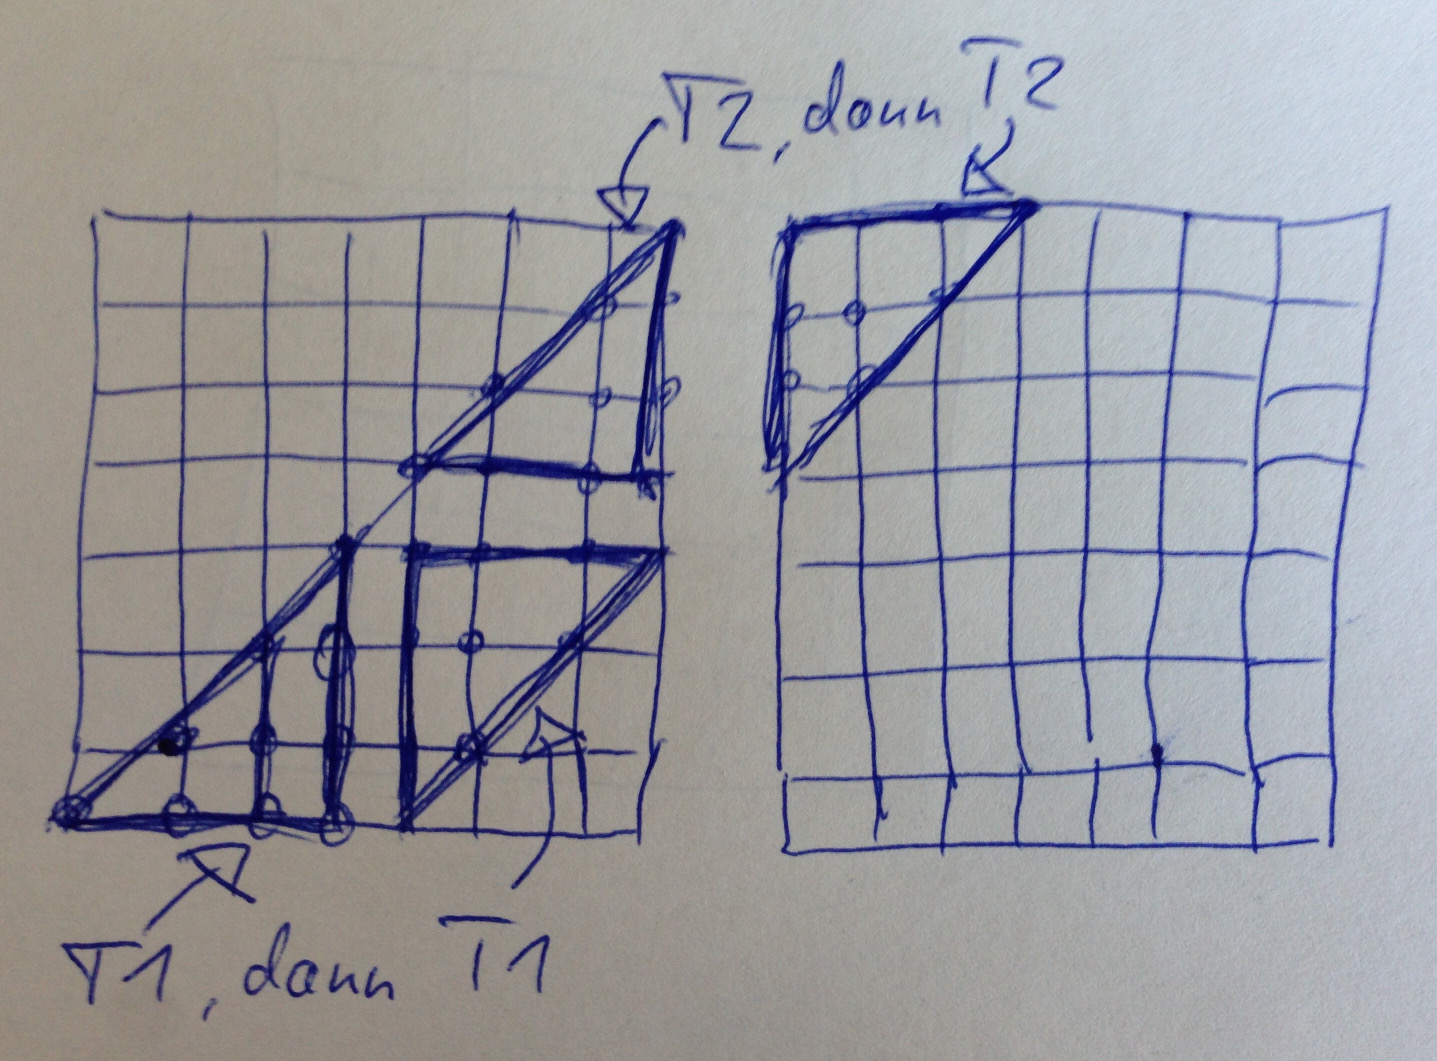 T2, dann T2
T1, dann T1